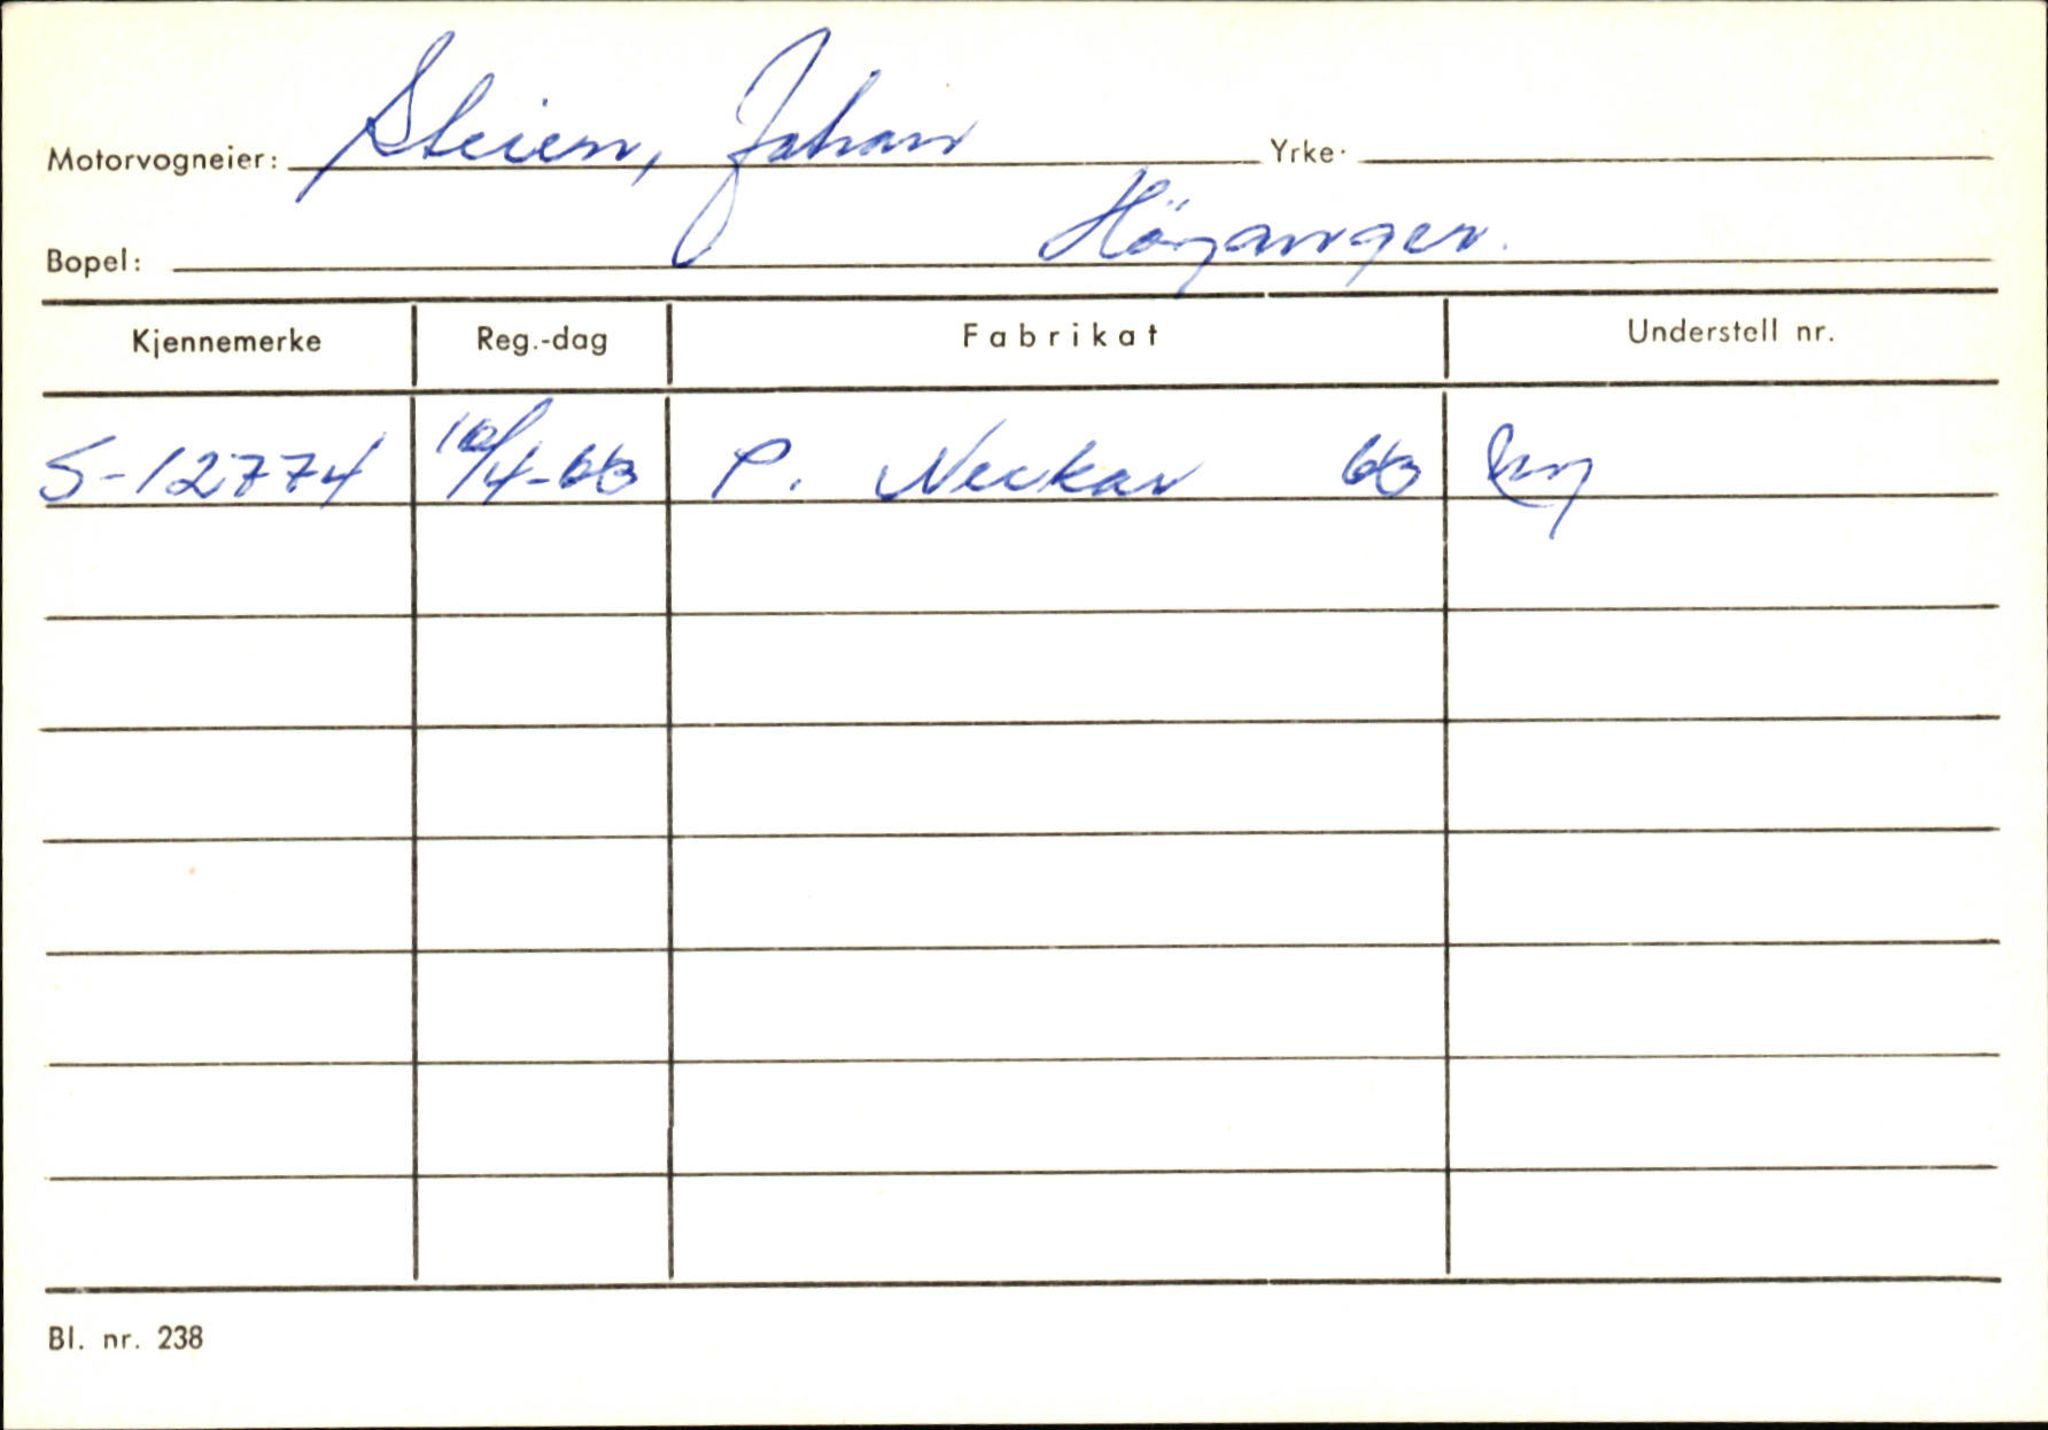 Motorvogneier: Steien, Johan Yrke:
Bopel: Höyanger.
Kjennemerke Reg.-dag Fabrikat Understell nr.
S-12774 10/4-63 P. Neckar 63 Ny
Bl. nr. 238